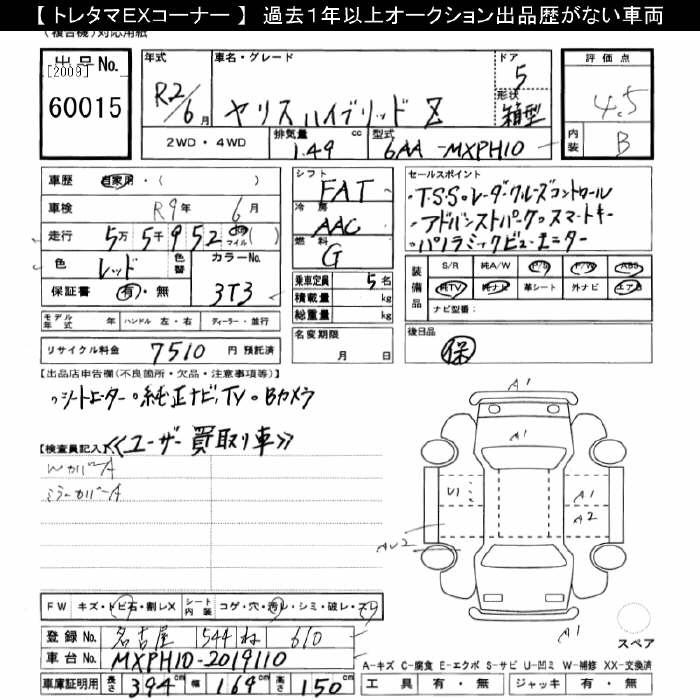 【 トレタマEXコーナー 】 過去1年以上オークション出品歴がない車両
(複合機)対応用紙
出品No.
[2009]
60015
年式
R2/6月
車名・グレード
ヤリスハイブリッド Z
ドア
5
形状
箱型
評価点
4.5
内装
B
2WD・4WD
排気量
1.49 cc
型式
6AA-MXPH10
車歴 自家用・( )
車検 R9年 6月
走行 5万5千952 km マイル ( )
色 レッド 色替 カラーNo.
保証書 有・無 3T3
モデル年式 年 ハンドル 左・右 ディーラー・並行
リサイクル料金 7510 円 預託済
シフト FAT
冷房 AAC
燃料 G
乗車定員 5名
積載量 kg
総重量 kg
名変期限
月 日
セールスポイント
・T.S.S・レーダークルーズコントロール
・アドバンストパーク・スマートキー
・パノラミックビューモニター
装備品
S/R 純A/W P/S P/W ABS
純TV 純ナビ 革シート 外ナビ エアB
ナビ型番:
後日品
保
【出品店申告欄(不良箇所・欠品・注意事項等)】
・シートヒーター ・純正ナビ,TV ・Bカメラ
【検査員記入】
≪ユーザー買取り車≫
WカバーA
ミラーカバーA
A1
A1
U1
A1
A2
AU2
A1
スペア
FW キズ・トビ石・割レX シート内装 コゲ・穴・汚レ・シミ・破レ・スレ
登録No. 名古屋 544 ね 610
車台No. MXPH10-2019110
車庫証明用 長さ 394cm 幅 169cm 高さ 150cm
A-キズ C-腐食 E-エクボ S-サビ U-凹ミ W-補修 XX-交換済
工具 有・無 ジャッキ 有・無